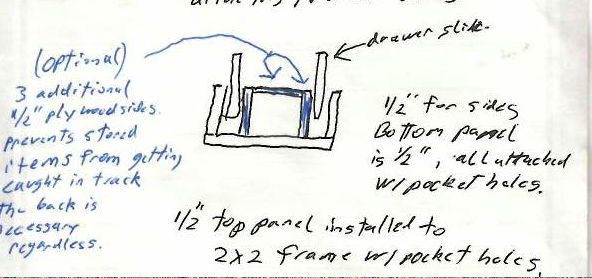 drawer slide.
(optional)
3 additional
1/2" plywood sides.
prevents stored
items from getting
caught in track
the back is
necessary
regardless.
1/2" for sides
Bottom panel
is 1/2", all attached
w/ pocket holes.
1/2" top panel installed to
2x2 frame w/ pocket holes